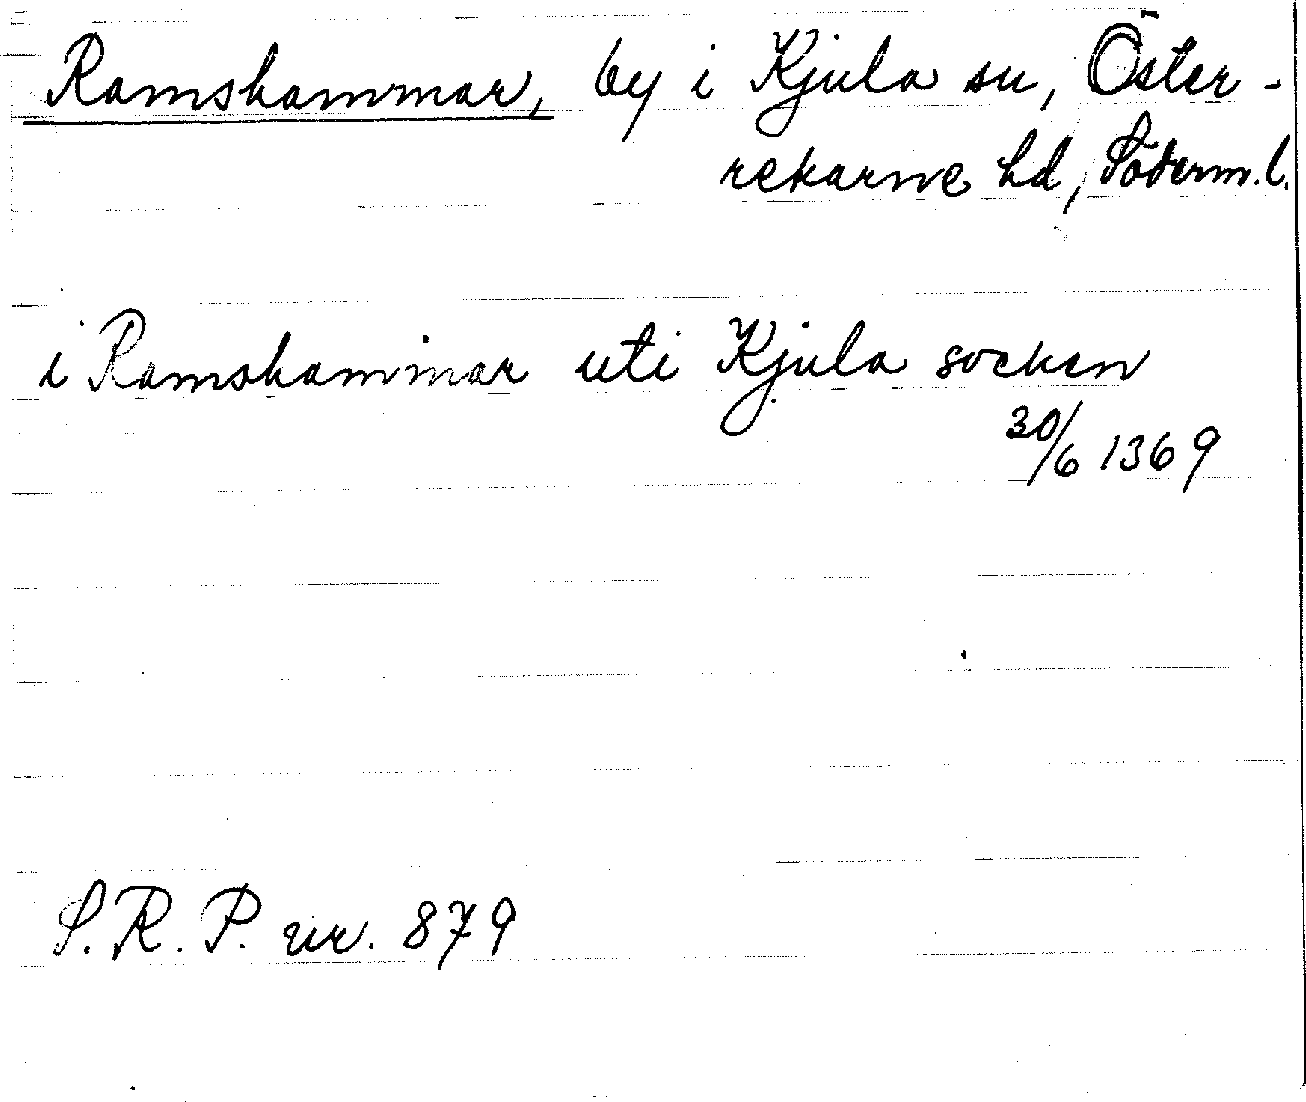 Ramshammar, by i Kjula sn, Öster-
rekarne hd, Söderm. l.
i Ramshammar uti Kjula socken
30/6 1369
S. R. P. nr. 879